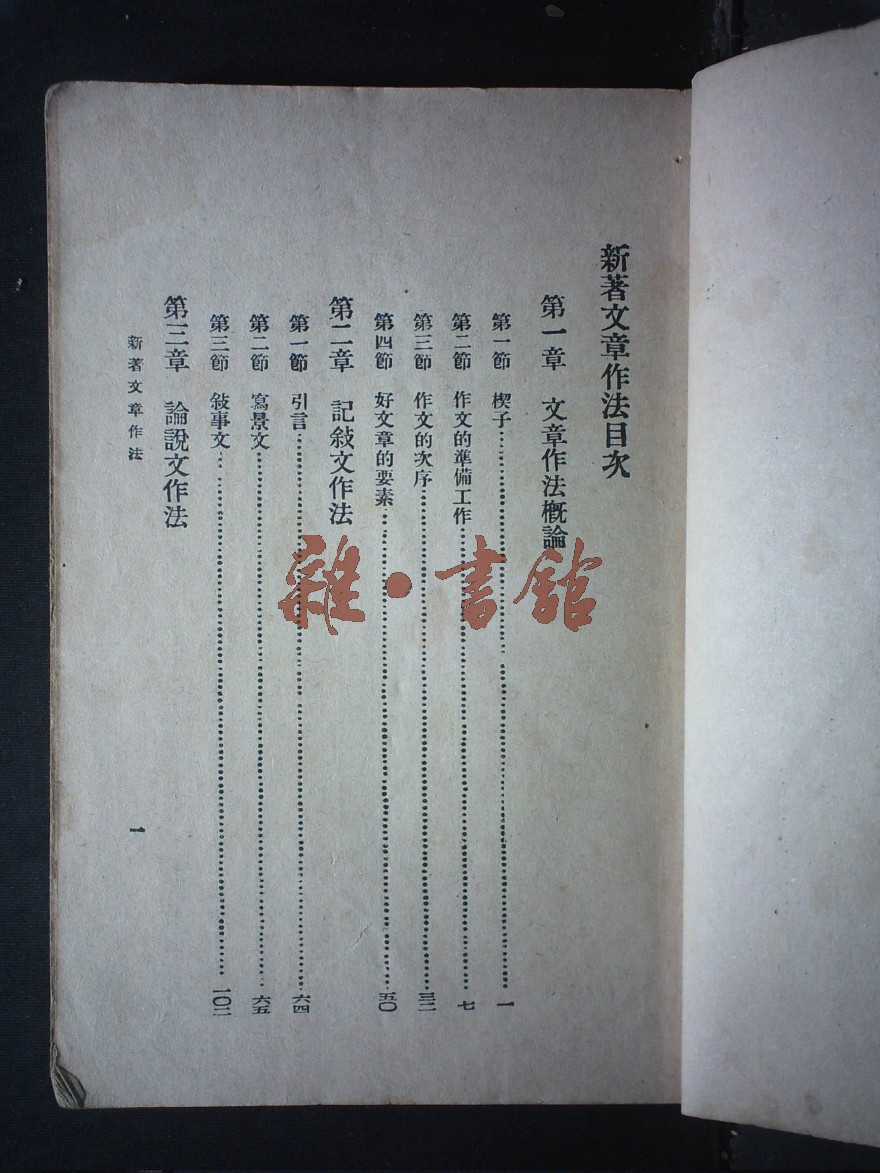 新著文章作法目次
第一章 文章作法概論
第一節 楔子…………一
第二節 作文的準備工作…………七
第三節 作文的次序…………三二
第四節 好文章的要素…………五〇
第二章 記敍文作法
第一節 引言…………六四
第二節 寫景文…………六五
第三節 敍事文…………一〇二
第三章 論說文作法
新著文章作法
一
雜·書館